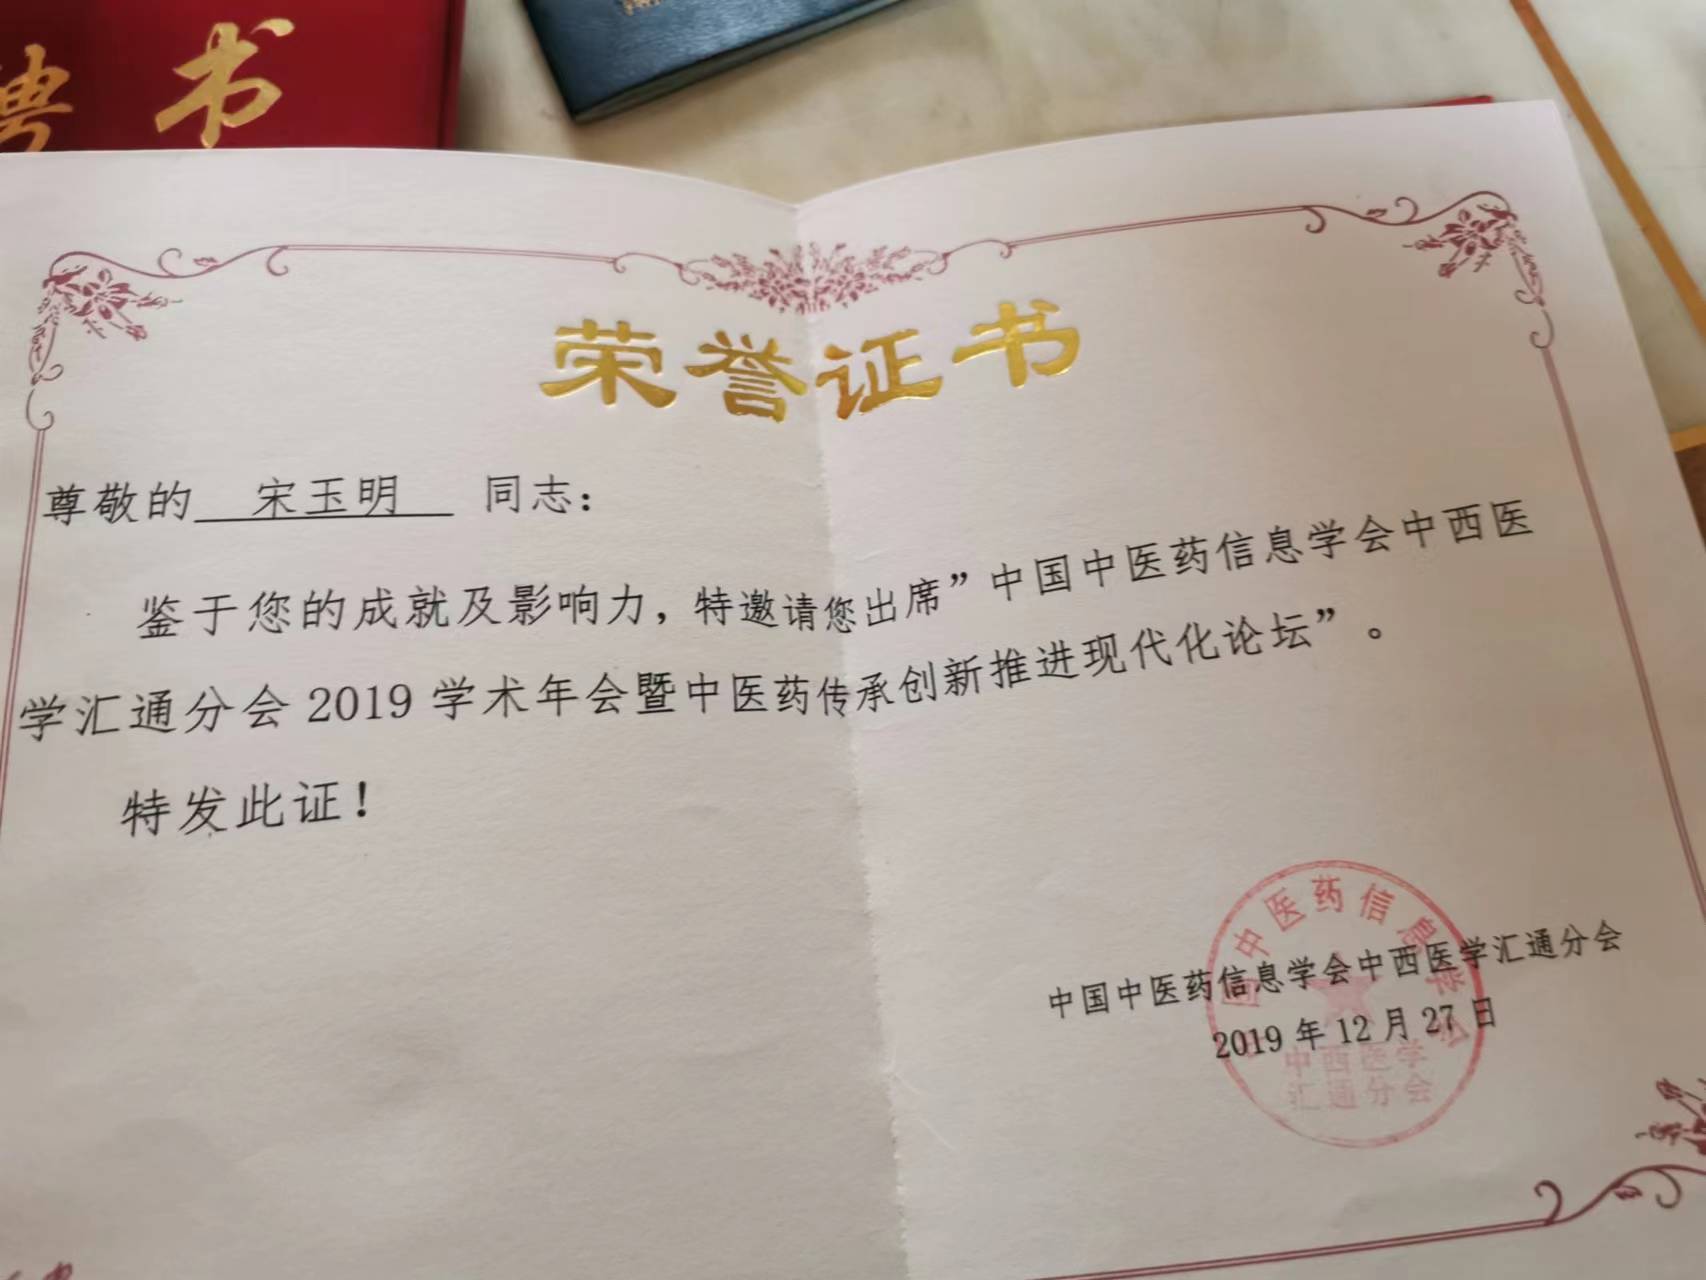 聘书
荣誉证书
尊敬的 宋玉明 同志：
鉴于您的成就及影响力，特邀请您出席”中国中医药信息学会中西医
学汇通分会 2019 学术年会暨中医药传承创新推进现代化论坛”。
特发此证！
中国中医药信息学会中西医学汇通分会
2019 年 12 月 27 日
中国中医药信息学会
中西医学
汇通分会